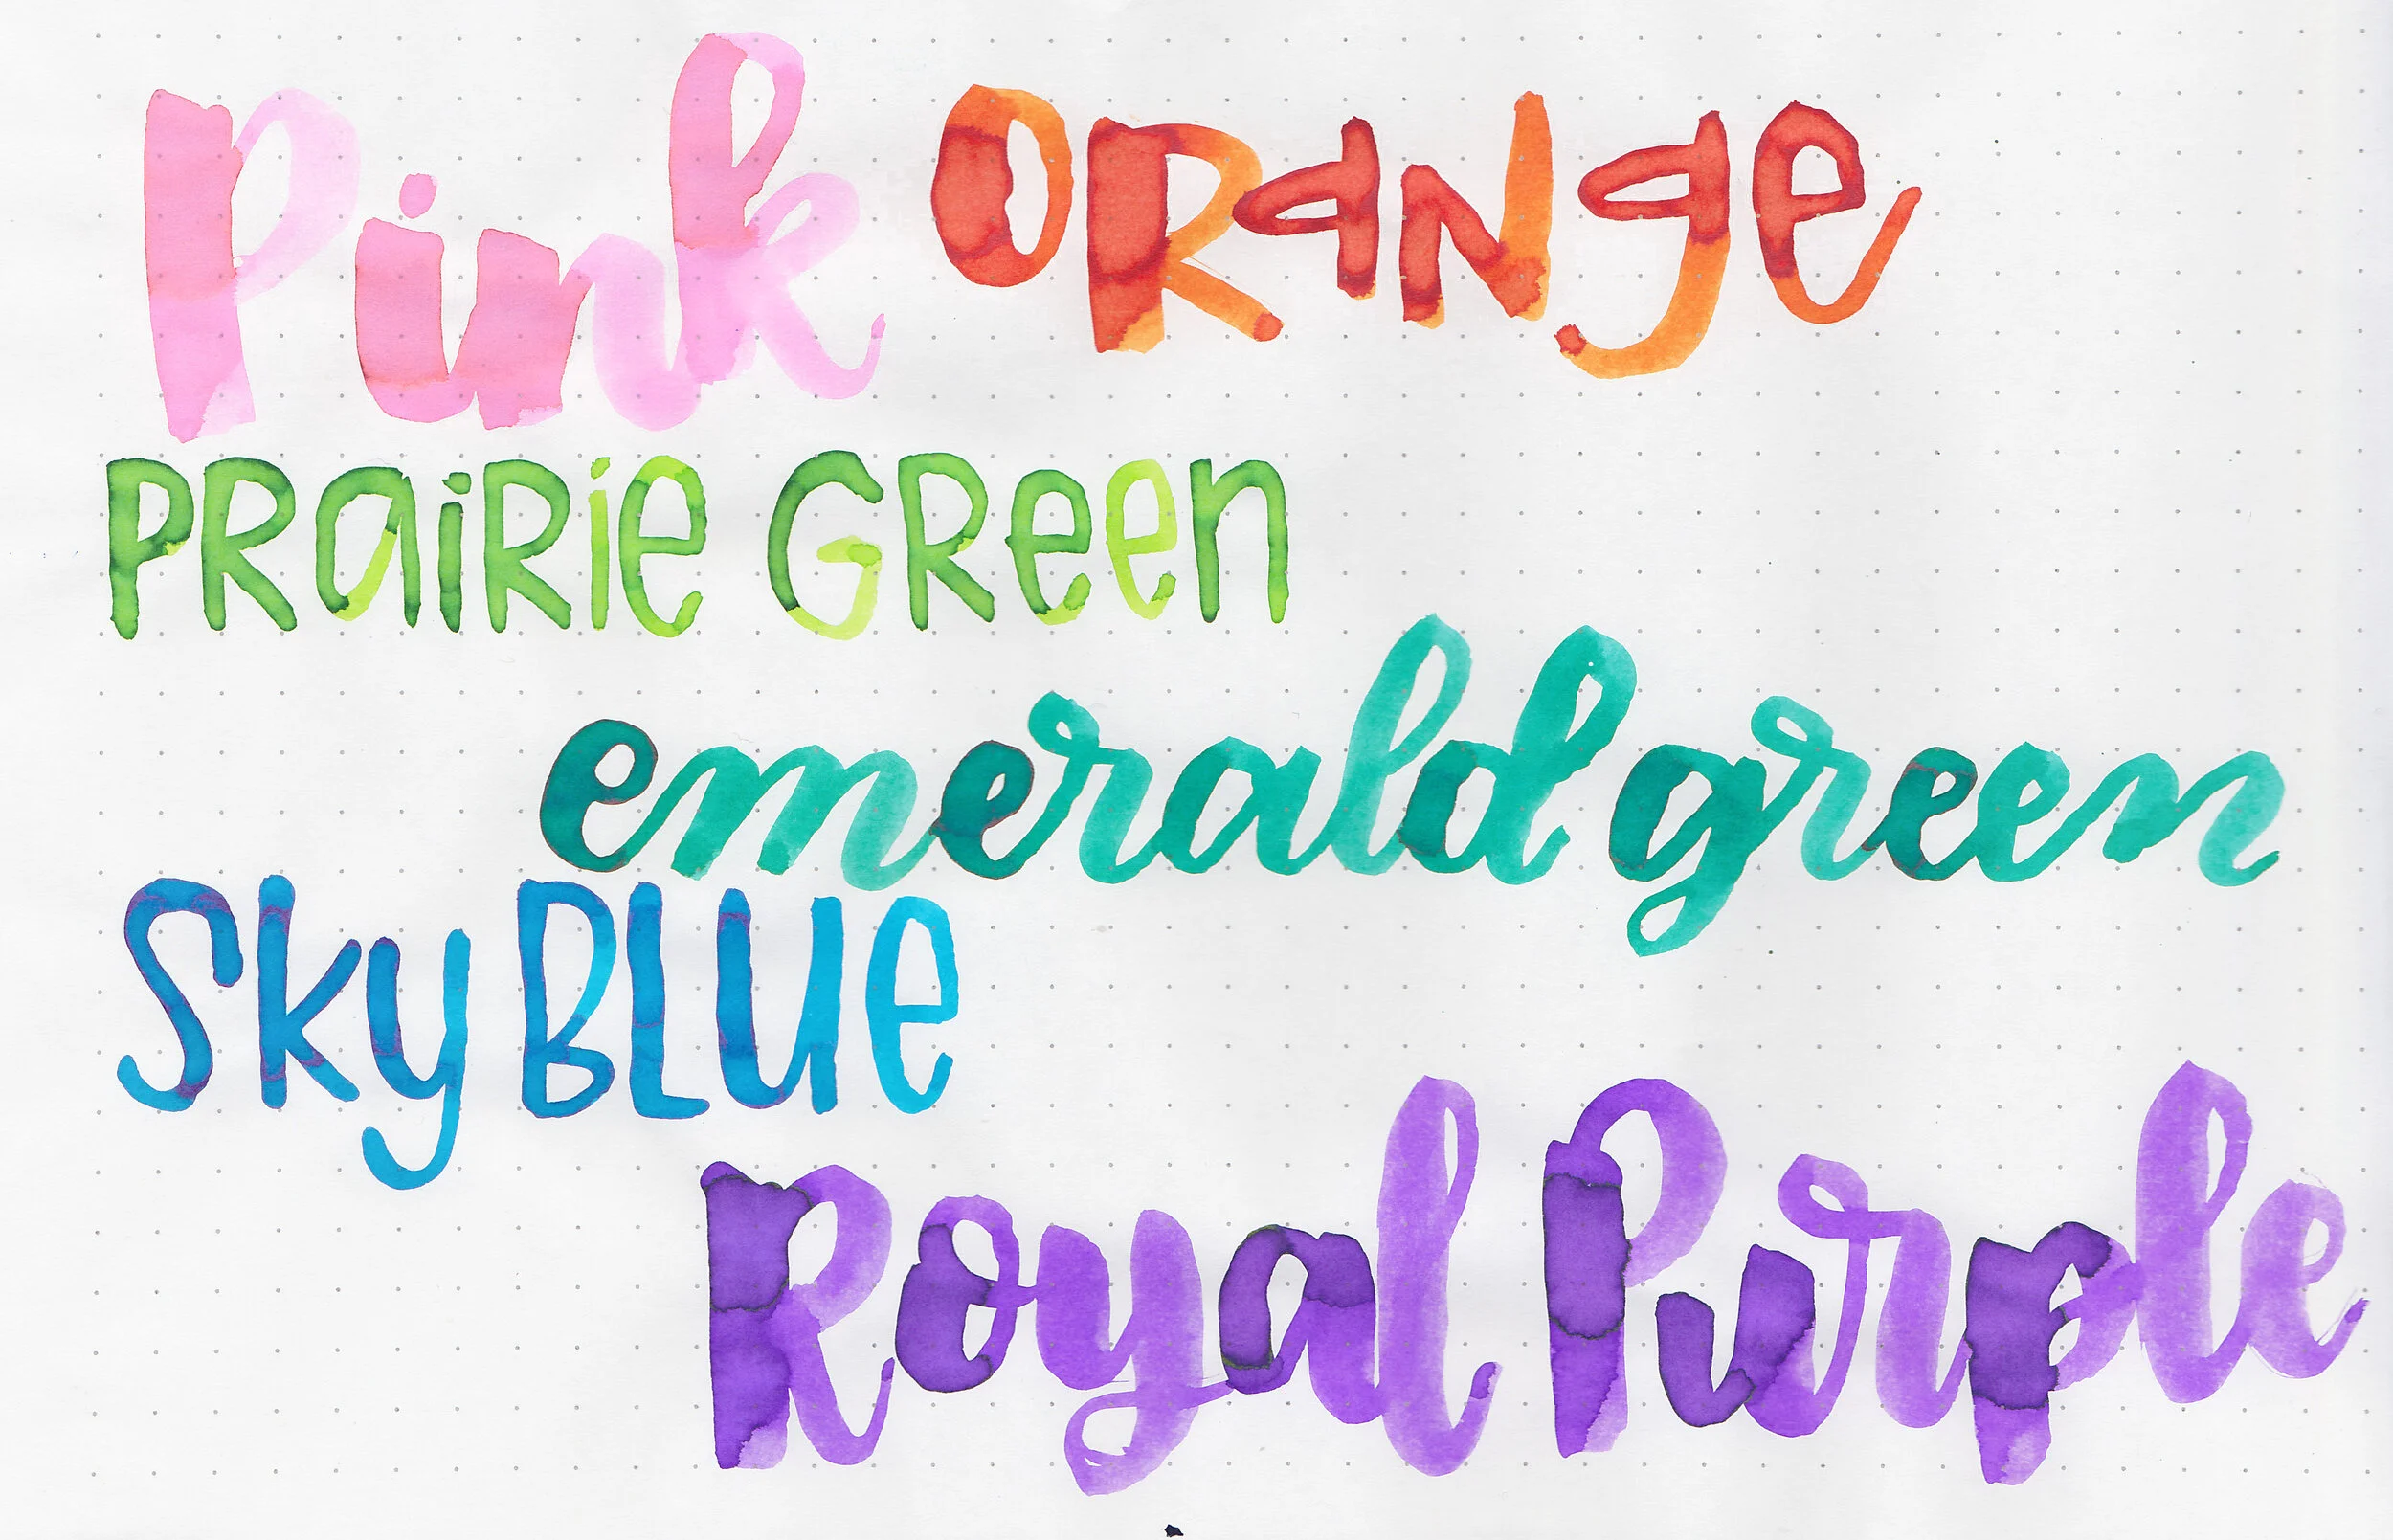 Pink ORaNge
PRaiRie GReen
emerald green
Sky BLUe
Royal Purple